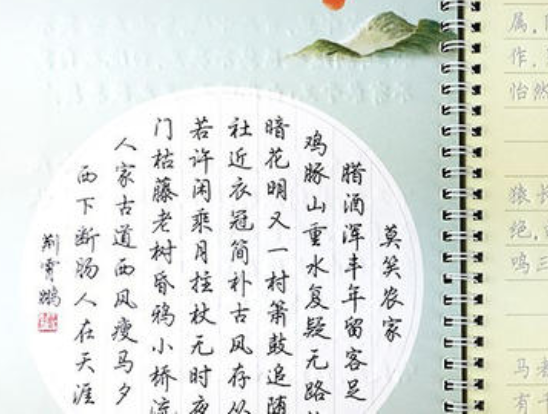 莫笑农家
腊酒浑丰年留客足
鸡豚山重水复疑无路
暗花明又一村箫鼓追随
社近衣冠简朴古风存从
若许闲乘月拄杖无时夜
门枯藤老树昏鸦小桥流
人家古道西风瘦马夕
西下断肠人在天涯
荆霄鹏
属，
作，
怡然
猿长
绝，
鸣三
马者
有千